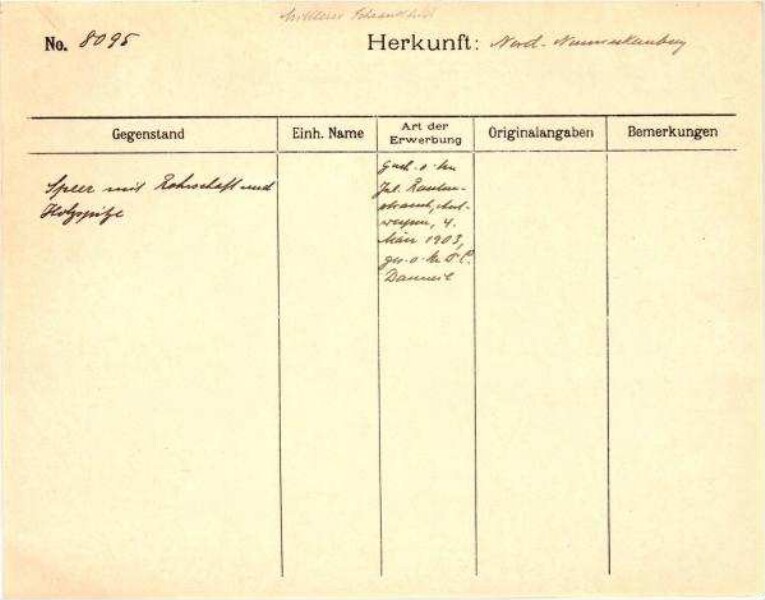 Mittlerer Schrank
No. 8095 Herkunft: Nord-Neumecklenburg
Gegenstand Einh. Name Art der Erwerbung Originalangaben Bemerkungen
Speer mit Rohrschaft und
Holzspitze
Gesch. v. Hrn
Jul. Rauten-
strauch, Ant-
werpen, 4.
März 1903,
ges. v. Hr. C.
Danneil